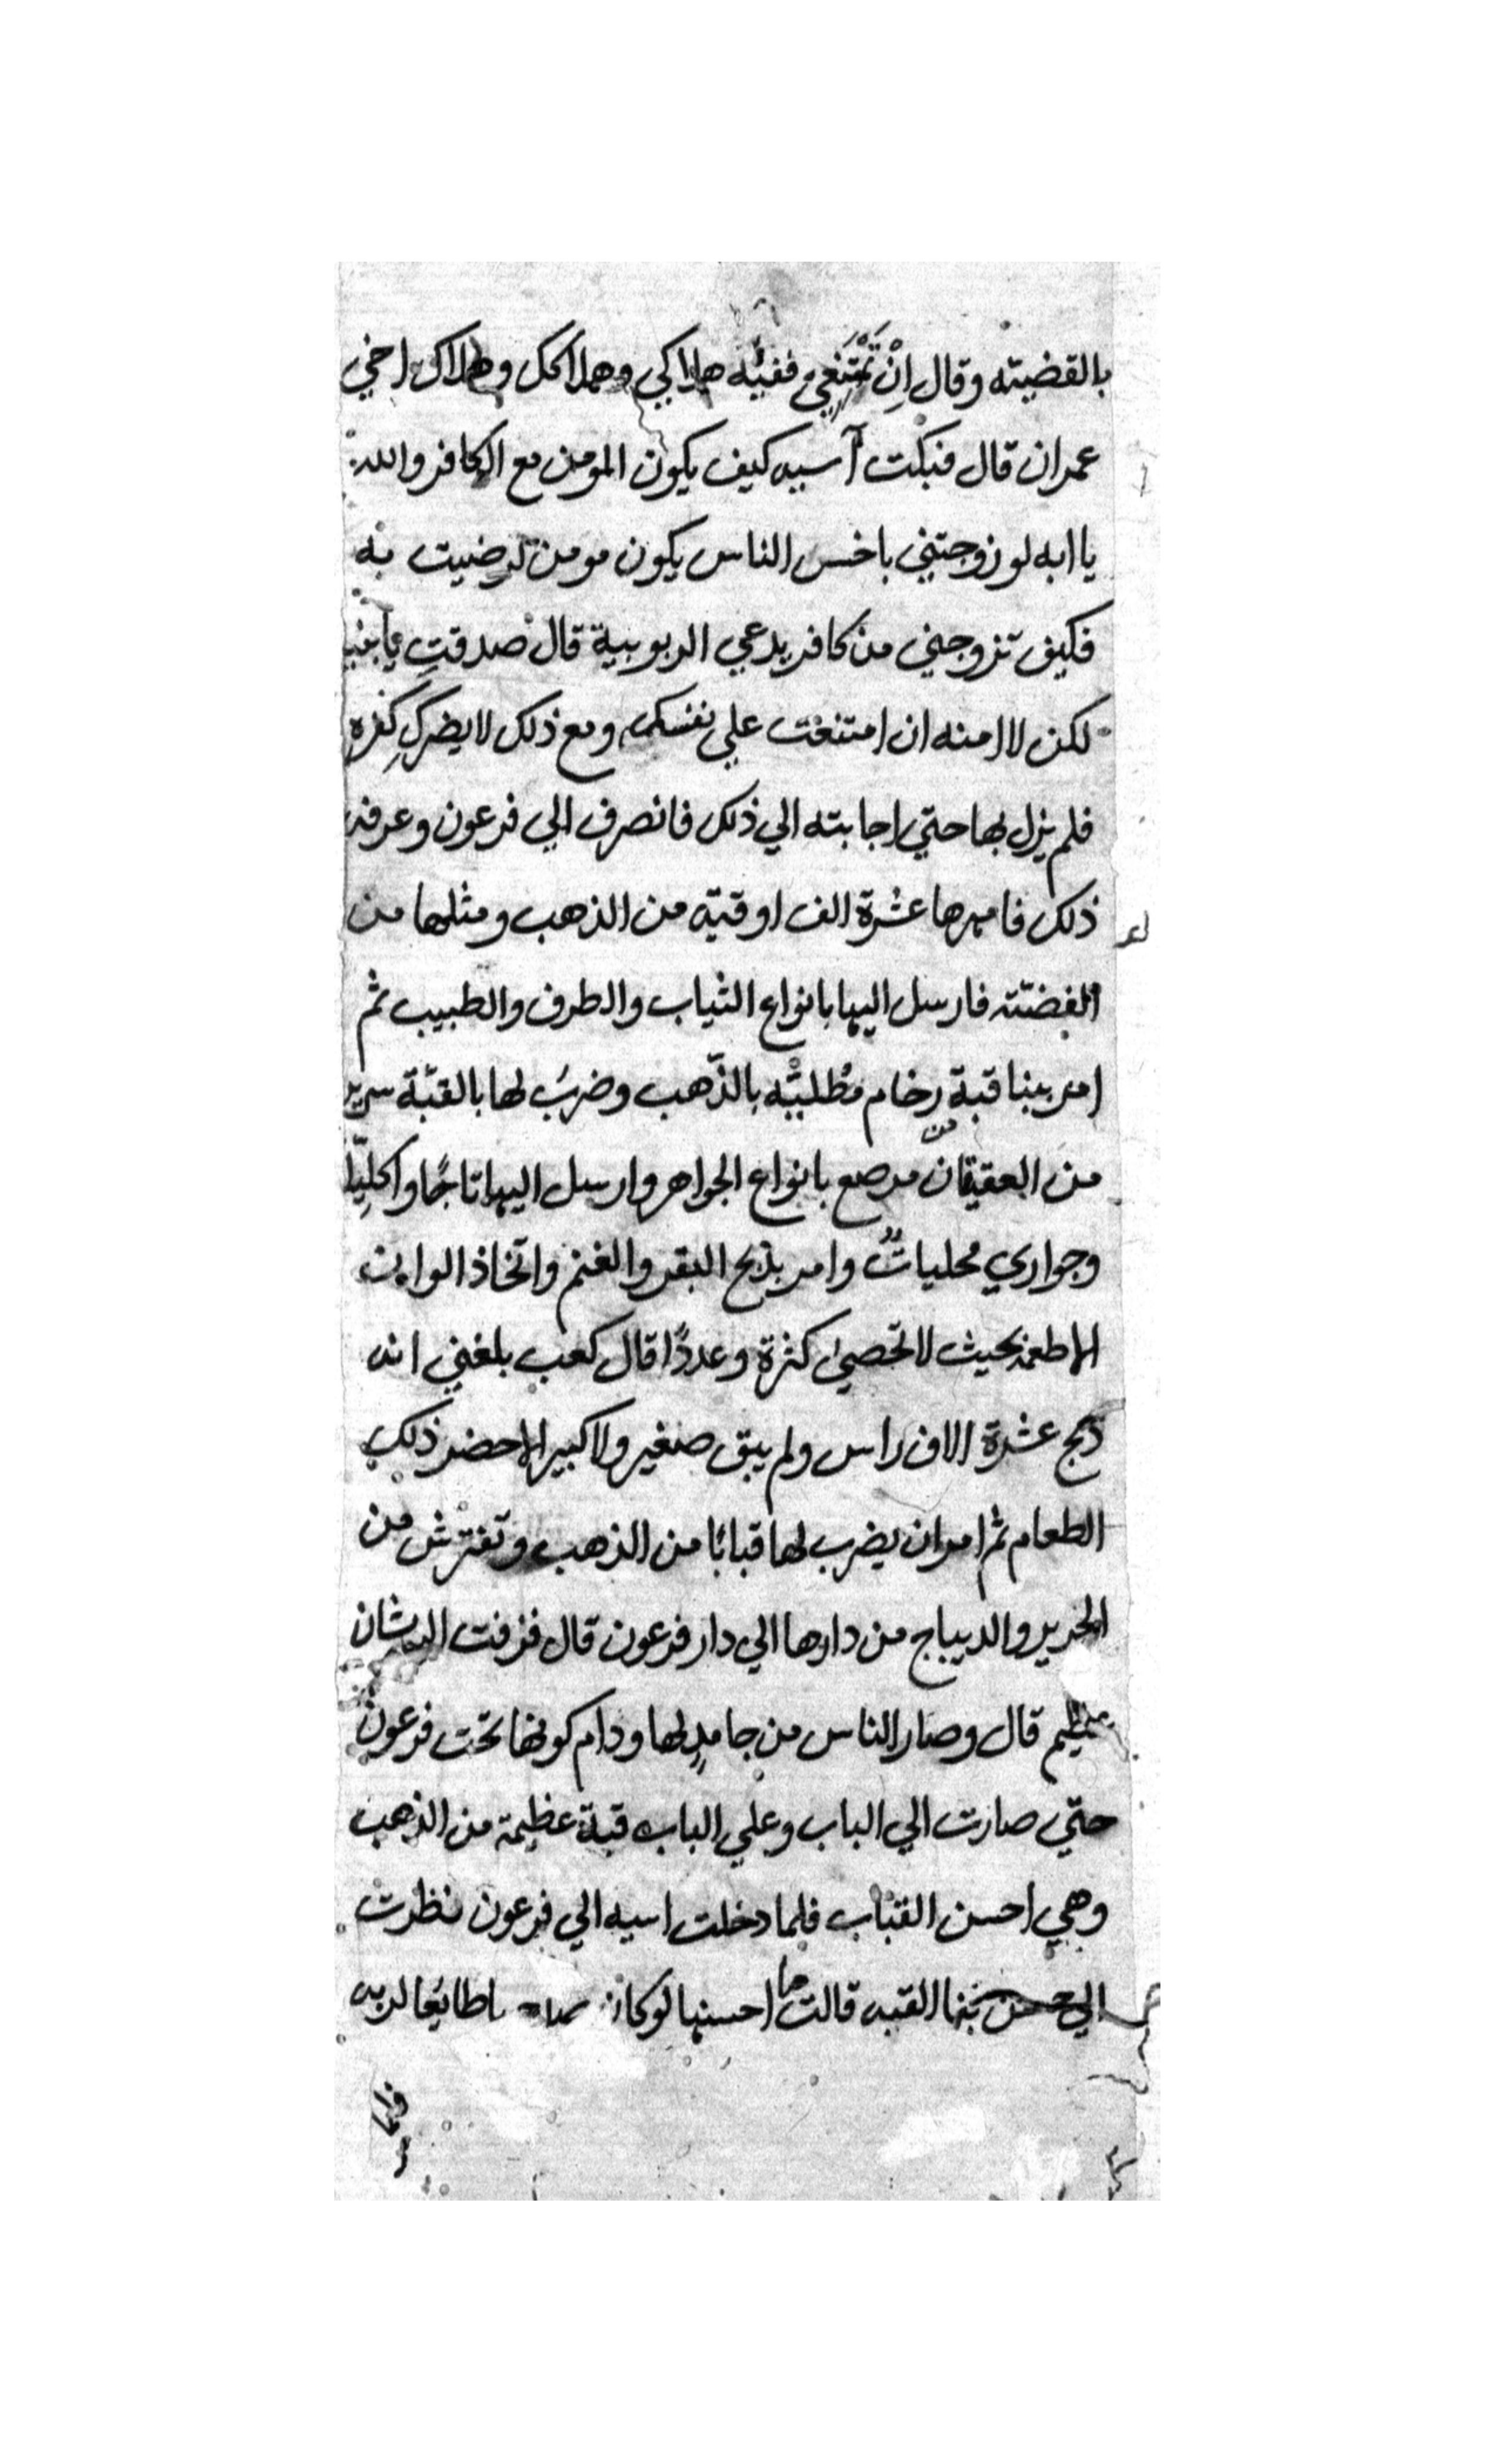 بالقضيته وقال اِنْ تَمْتَنِعي ففيْه هلاكي وهلاكك وهلاك اخي
عمران قال فبكت آسيه كيف يكون المومن مع الكافر والله
يا ابه لو زوجتني باخس الناس يكون مومن لرضيت به
فكيف تزوجني من كافر يدعي الربوبية قال صدقتِ يا بنيه
لكن لا امنه ان امتنعت علي نفسك ومع ذلك لا يضركِ كفره
فلم يزل بها حتي اجابته الي ذلك فانصرف الي فرعون وعرفه
ذلك فامهرها عشرة الف اوقيه من الذهب ومثلها من
الفضّته فارسل اليها بانواع الثياب والطرف والطيب ثم
امر ببنا قبة رخام مطليّه بالذّهب وضربُ لها بالقبّة سرير
من العقيقان مرصع بانواع الجواهر وارسل اليها تاجًا واكليلًا
وجواري محلياتٌ وامر بذبح البقر والغنم واتخاذ الوان
الاطعمه بحيث لا تحصي كثرة وعددًا قال كعب بلغني انه
ذبح عشرة الاف راس ولم يبق صغير ولا كبير الا حضر ذلك
الطعام ثم امر ان يضرب لها قبابًا من الذهب وتفترش من
الحرير والديباج من دارها الي دار فرعون قال فزفت اليه بشان
عظيم قال وصار الناس من حامدٍ لها ودام كونها تحت فرعون
حتي صارت الي الباب وعلي الباب قبة عظيمة من الذهب
وهي احسن القباب فلما دخلت اسيه الي فرعون نظرت
الي حسن بنا القبه قالت ما احسنها لو كان طايعًا لربه
فلما